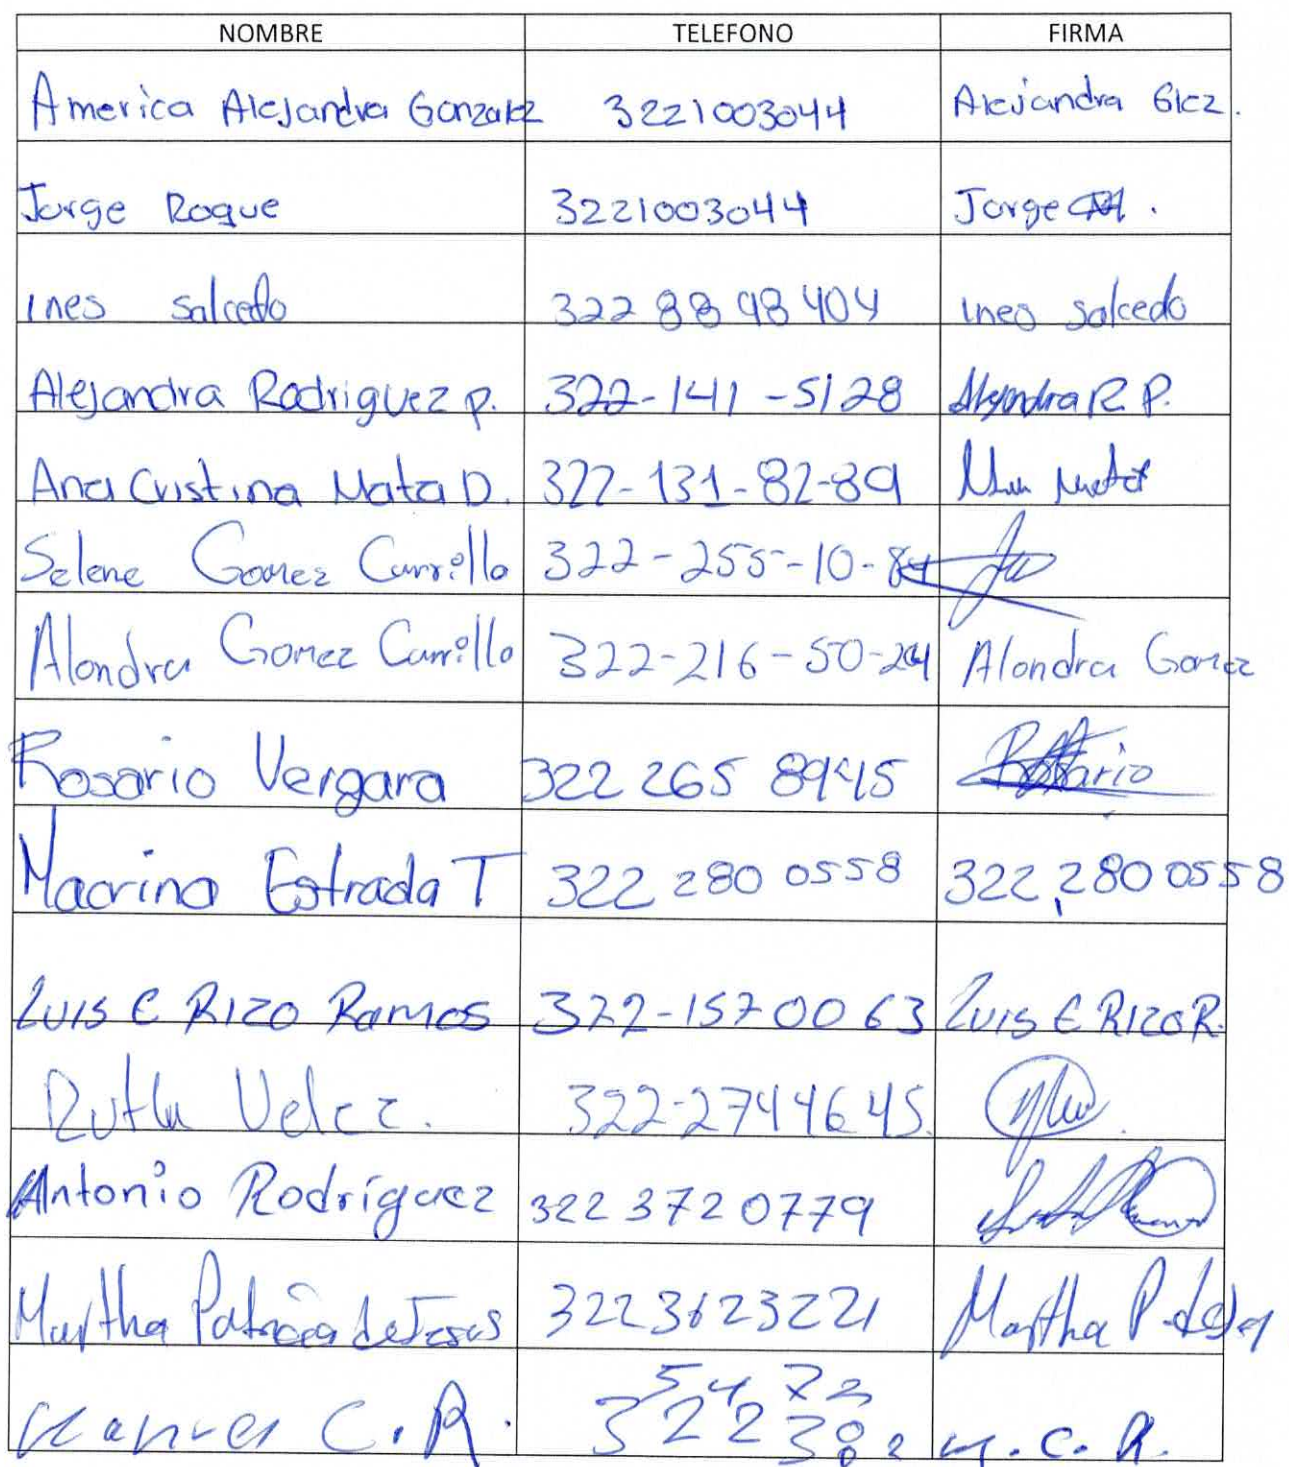 NOMBRE TELEFONO FIRMA
America Alejandra Gonzalez 3221003044 Alejandra Glez.
Jorge Roque 3221003044 Jorge
Ines Salcedo 322 88 98 404 Ines Salcedo
Alejandra Rodriguez p. 322-141-5128 Alejandra R. P.
Ana Cristina Mata D. 322-131-82-89
Selene Gomez Carrillo 322-255-10-84
Alondra Gomez Carrillo 322-216-50-24 Alondra Gomez
Rosario Vergara 322 265 8945 Rosario
Macrina Estrada T 322 280 0558 322 280 0558
Luis E Rizo Ramos 322-157 00 63 Luis E Rizo R.
Ruth Velez. 322-2744645.
Antonio Rodríguez 322 372 0779
Martha Patricia de Jesus 3223623221 Martha P.
C.R. M.C.R.